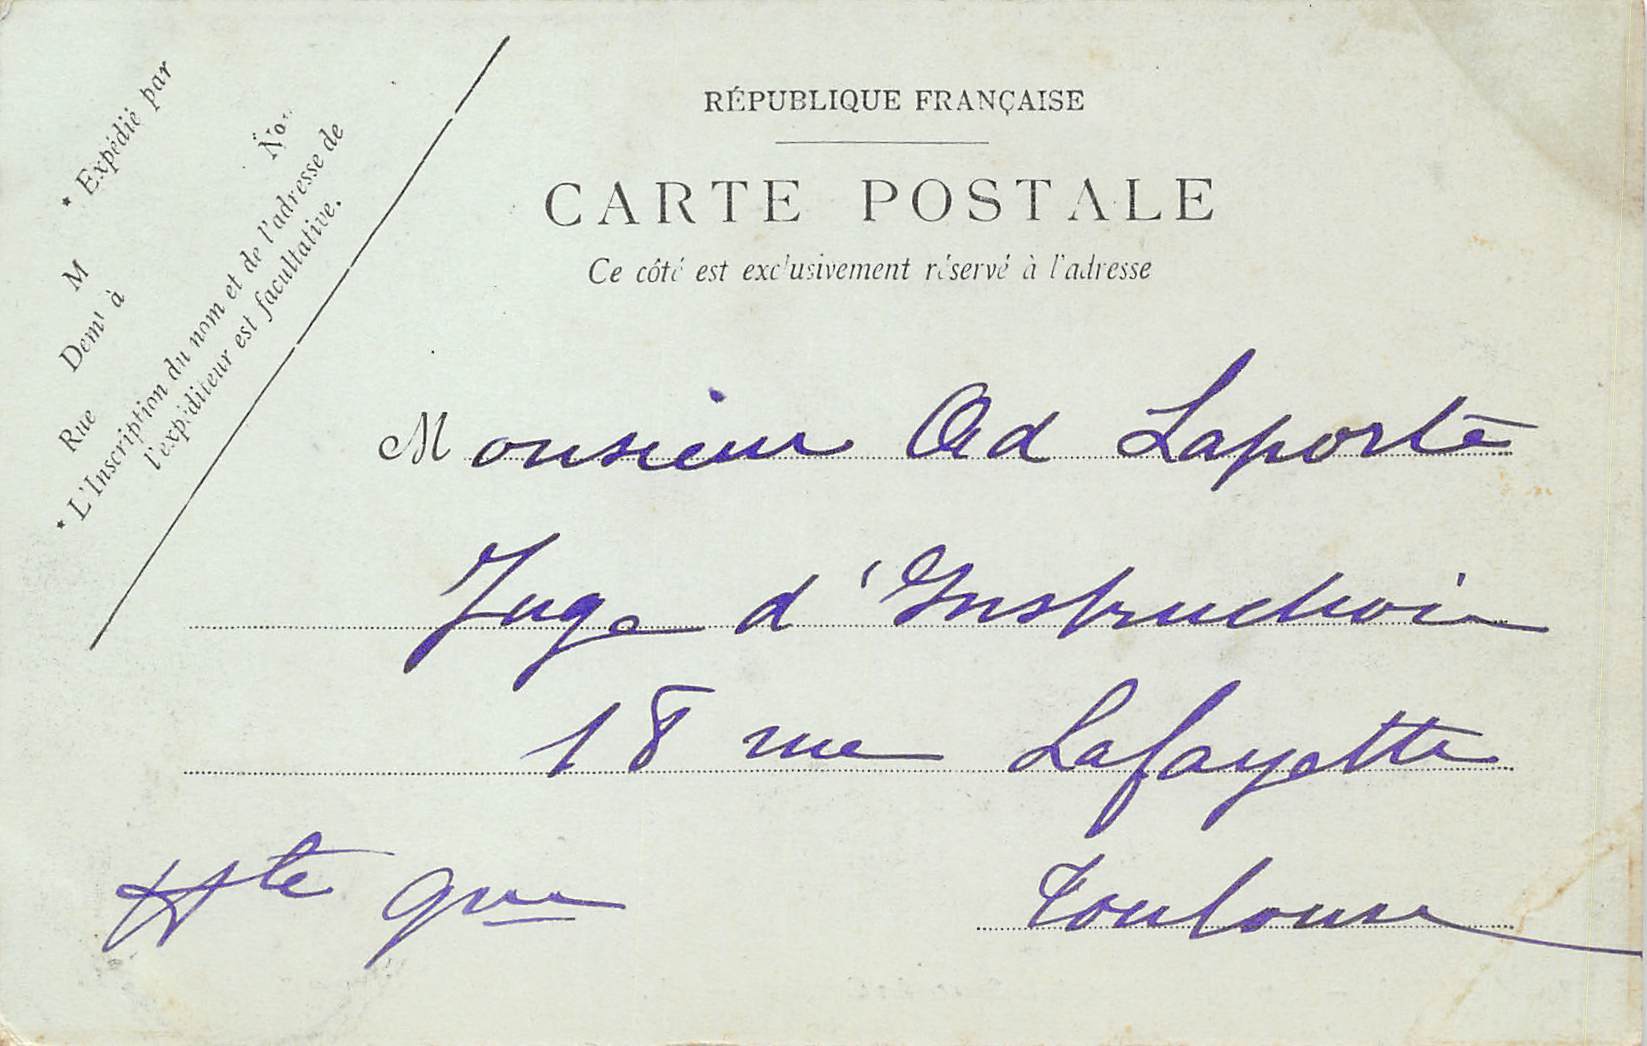 * Expédié par
M
Dem^t à
Rue No
* L'Inscription du nom et de l'adresse de
l'expéditeur est facultative.
RÉPUBLIQUE FRANÇAISE
CARTE POSTALE
Ce côté est exclusivement réservé à l'adresse
Monsieur Ad Laporte
Juge d'Instruction
18 rue Lafayette
Toulouse
Hte gne